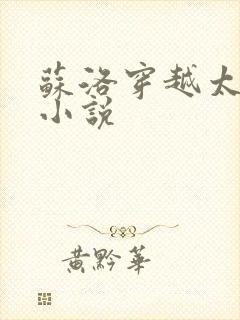 蘇洛穿越太
小說
黃黔華